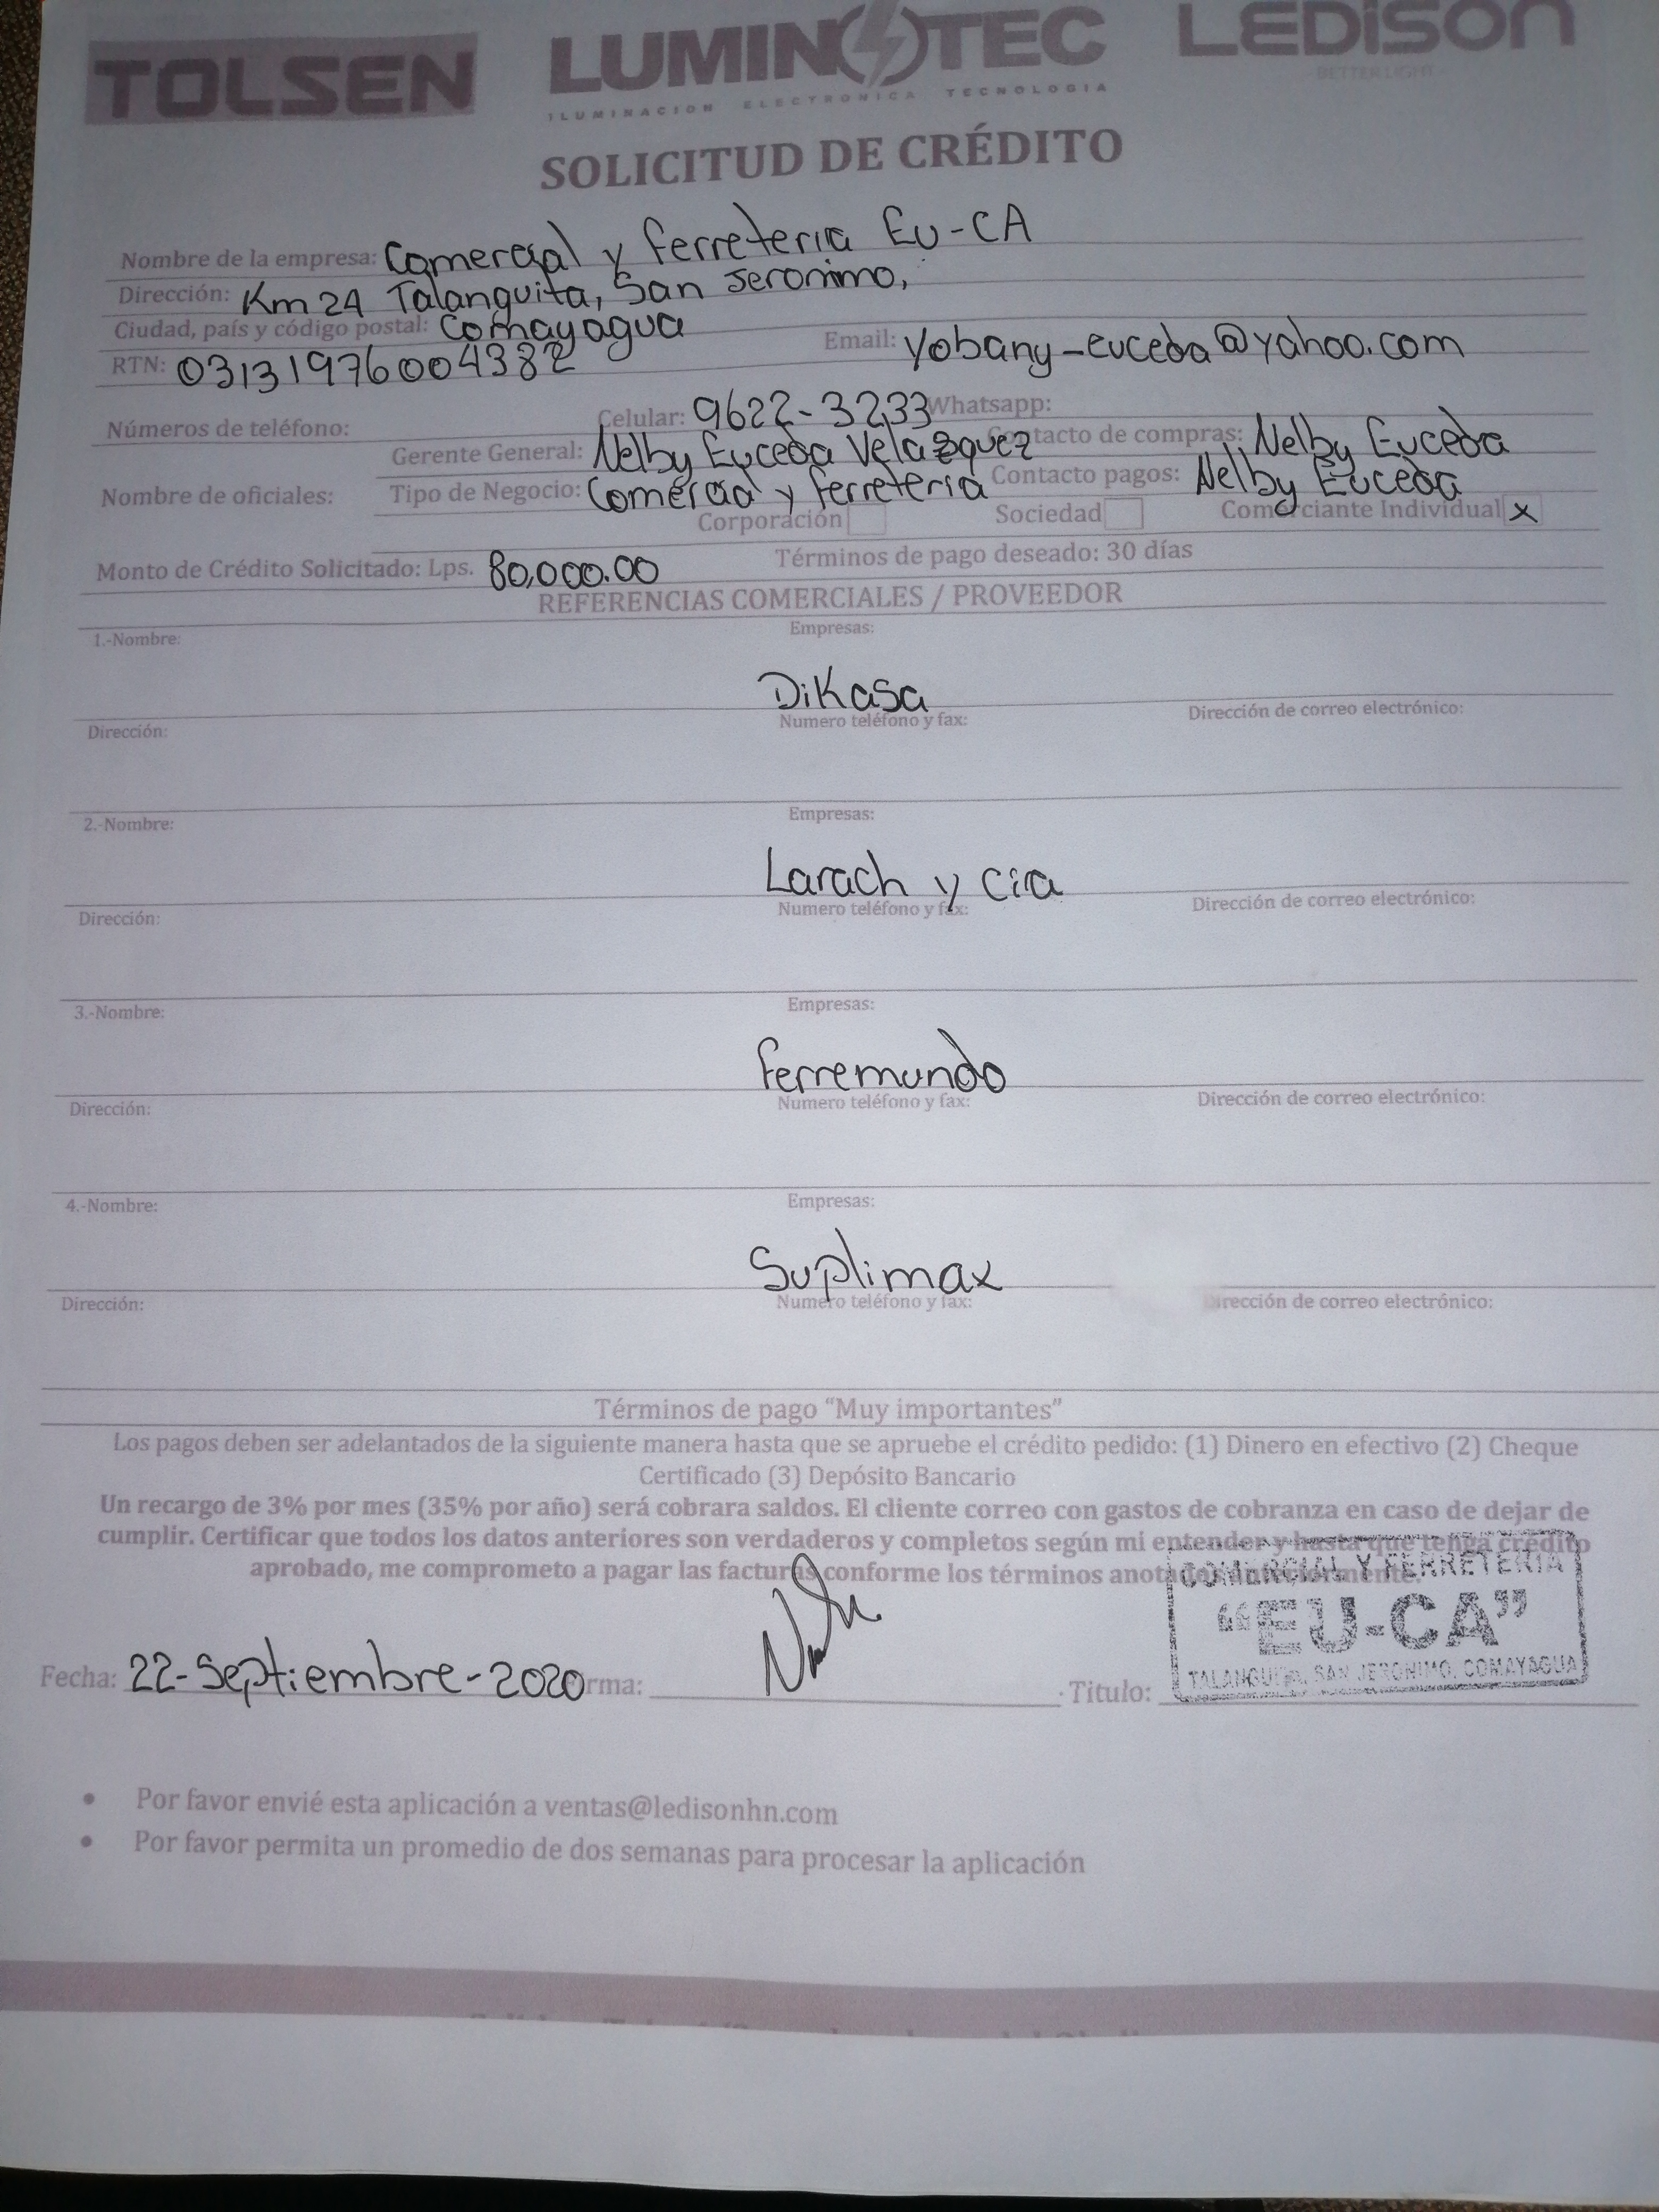 TOLSEN LUMINOTEC LEDISON
ILUMINACION ELECTRONICA TECNOLOGIA BETTER LIGHT
SOLICITUD DE CRÉDITO
Nombre de la empresa: Comercial y ferreteria EU-CA
Dirección: Km 24 Talanguita, San Jeronimo,
Ciudad, país y código postal: Comayagua
Email: yobany-euceda@yahoo.com
RTN: 03131976004382
Números de teléfono: Celular: 9622-3233 Whatsapp:
Gerente General: Nelby Euceda Velazquez Contacto de compras: Nelby Euceda
Nombre de oficiales: Tipo de Negocio: Comercial y ferreteria Contacto pagos: Nelby Euceda
Corporación Sociedad Comerciante Individual x
Monto de Crédito Solicitado: Lps. 80,000.00 Términos de pago deseado: 30 días
REFERENCIAS COMERCIALES / PROVEEDOR
1.-Nombre: Empresas:
Dikasa
Dirección: Numero teléfono y fax: Dirección de correo electrónico:
2.-Nombre: Empresas:
Larach y Cia
Dirección: Numero teléfono y fax: Dirección de correo electrónico:
3.-Nombre: Empresas:
ferremundo
Dirección: Numero teléfono y fax: Dirección de correo electrónico:
4.-Nombre: Empresas:
Suplimax
Dirección: Numero teléfono y fax: Dirección de correo electrónico:
Términos de pago “Muy importantes”
Los pagos deben ser adelantados de la siguiente manera hasta que se apruebe el crédito pedido: (1) Dinero en efectivo (2) Cheque
Certificado (3) Depósito Bancario
Un recargo de 3% por mes (35% por año) será cobrara saldos. El cliente correo con gastos de cobranza en caso de dejar de
cumplir. Certificar que todos los datos anteriores son verdaderos y completos según mi entender y hasta que tenga crédito
aprobado, me comprometo a pagar las facturas conforme los términos anotados anteriormente.
COMERCIAL Y FERRETERIA
“EU-CA”
TALANGUITA, SAN JERONIMO, COMAYAGUA
Fecha: 22-Septiembre-2020 rma: Titulo:
• Por favor envié esta aplicación a ventas@ledisonhn.com
• Por favor permita un promedio de dos semanas para procesar la aplicación